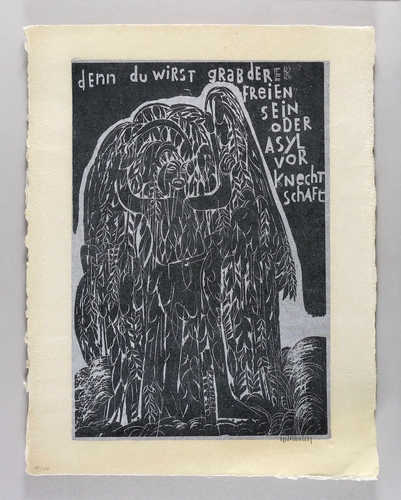 denn du wirst grab der ER
freien
sein
oder
Asyl
vor
Knecht
schaft